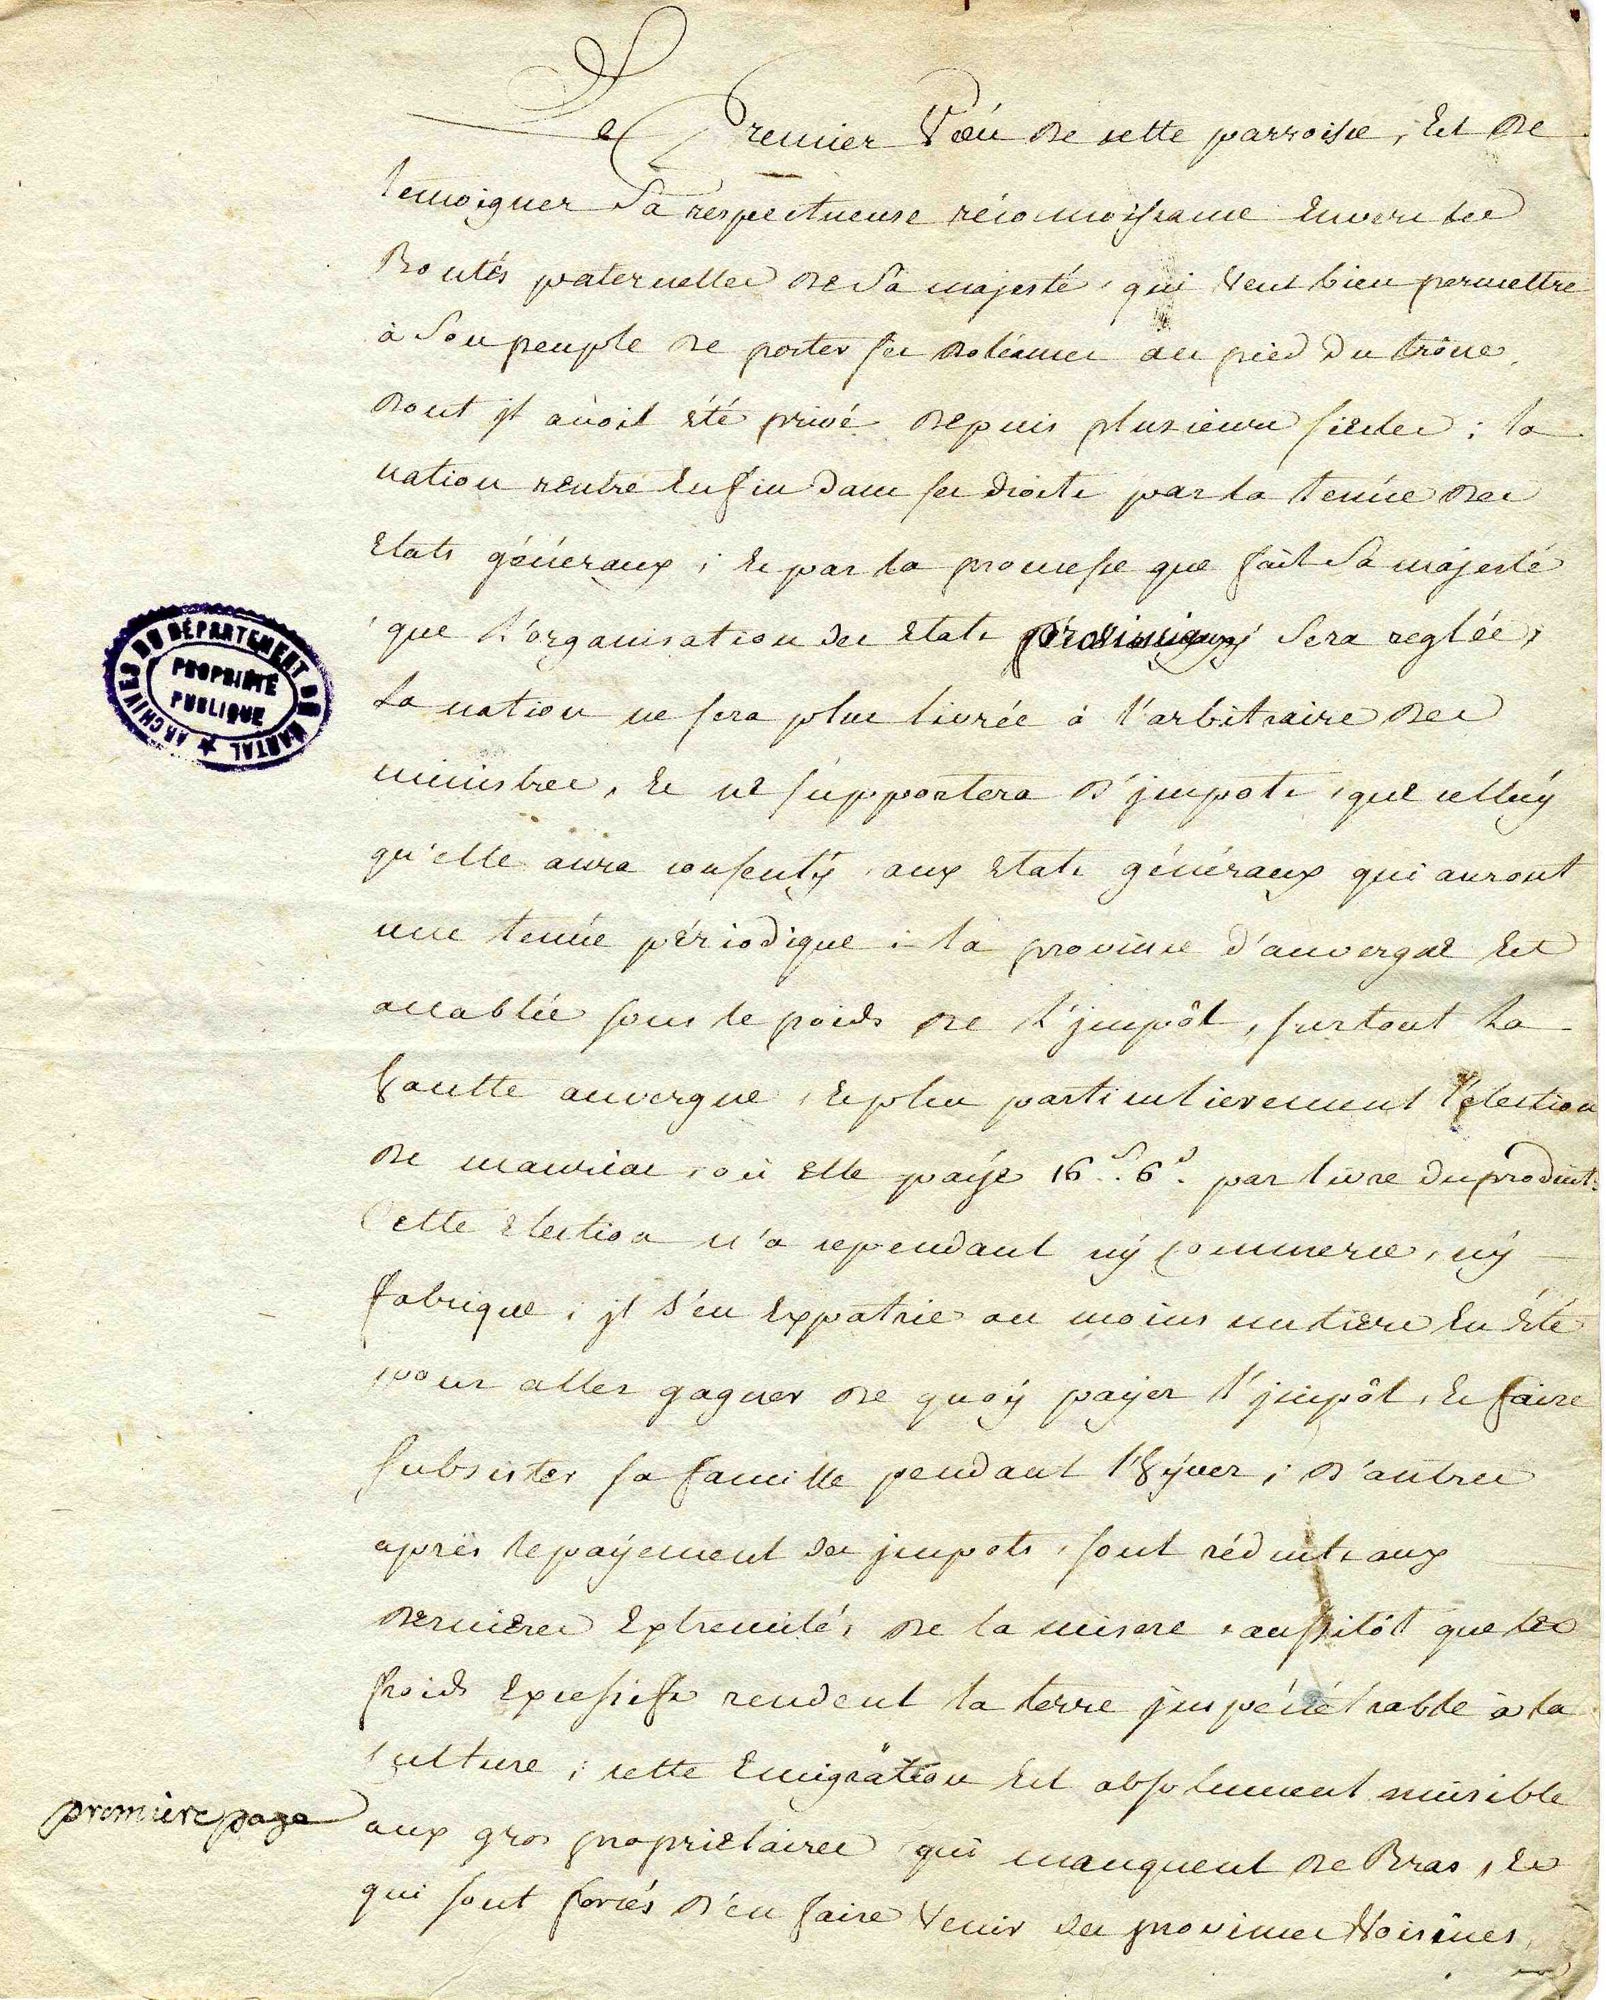 Le Premier Vœu de cette parroisse, Est de
temoigner Sa réspectueuse réconnoissance Envers les
Bontés paternelles de Sa majesté, qui veut bien permettre
à Son peuple de porter ses doléances au pied du trône,
dont jl avoit été privé depuis plusieurs siecles ; la
nation rentre Enfin dans ses droits par la tenüe des
Etats géneraux ; Et par la promesse que fait Sa majesté
que L'organisation des Etats provinciaux Sera reglée,
La nation ne sera plus livrée à l'arbitraire des
ministres, Et ne supportera d'jmpots, que celluÿ
qu'elle aura consentÿ aux Etats généraux qui auront
une tenüe périodique : la province d'auvergne Est
accablée sous le poids de l'jmpôt, surtout la
hautte auvergne, Et plus particulierement l'élection
de mauriac, où Elle païe 16.s 6.d par livre du produit.
Cette Election n'a cependant nÿ commerce, nÿ
fabrique ; jl s'en Expatrie au moins un tiers En Eté
pour aller gagner de quoÿ païer l'jmpôt, Et faire
subsister sa famille pendant l'hÿver ; d'autres
après le païement des jmpots, sont réduits aux
dernieres Extremités de la misere, aussitôt que les
froids Excessifs rendent la terre jmpénétrable à la
culture ; cette Emigration Est absolument nuisible
aux gros propriétaires qui manquent de Bras, Et
qui sont forcés d'en faire venir des provinces Voisines,
première page
ARCHIVES DU DÉPARTEMENT DU CANTAL
PROPRIÉTÉ
PUBLIQUE